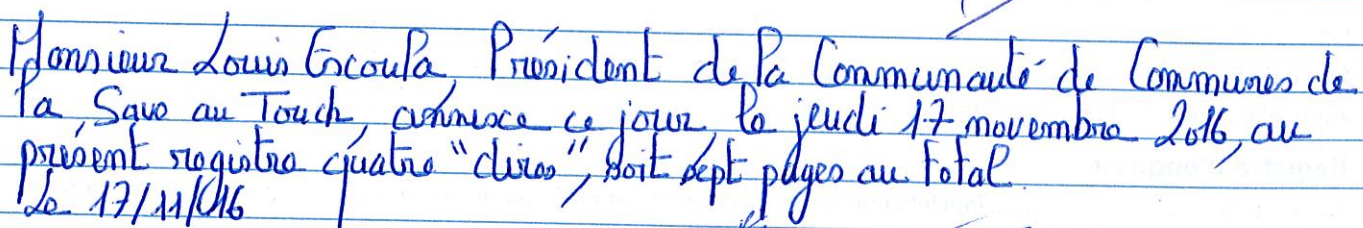 Monsieur Louis Escoula, Président de la Communauté de Communes de
la Save au Touch, annexe ce jour, le jeudi 17 novembre 2016, au
présent registre quatre "dires", soit sept pages au total.
Le 17/11/016